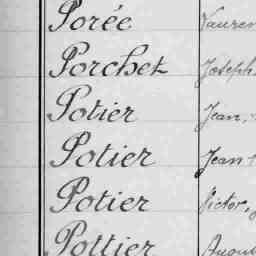 Porée Lauren
Porchet Joseph
Potier Jean,
Potier Jean
Potier Victor,
Pottier August